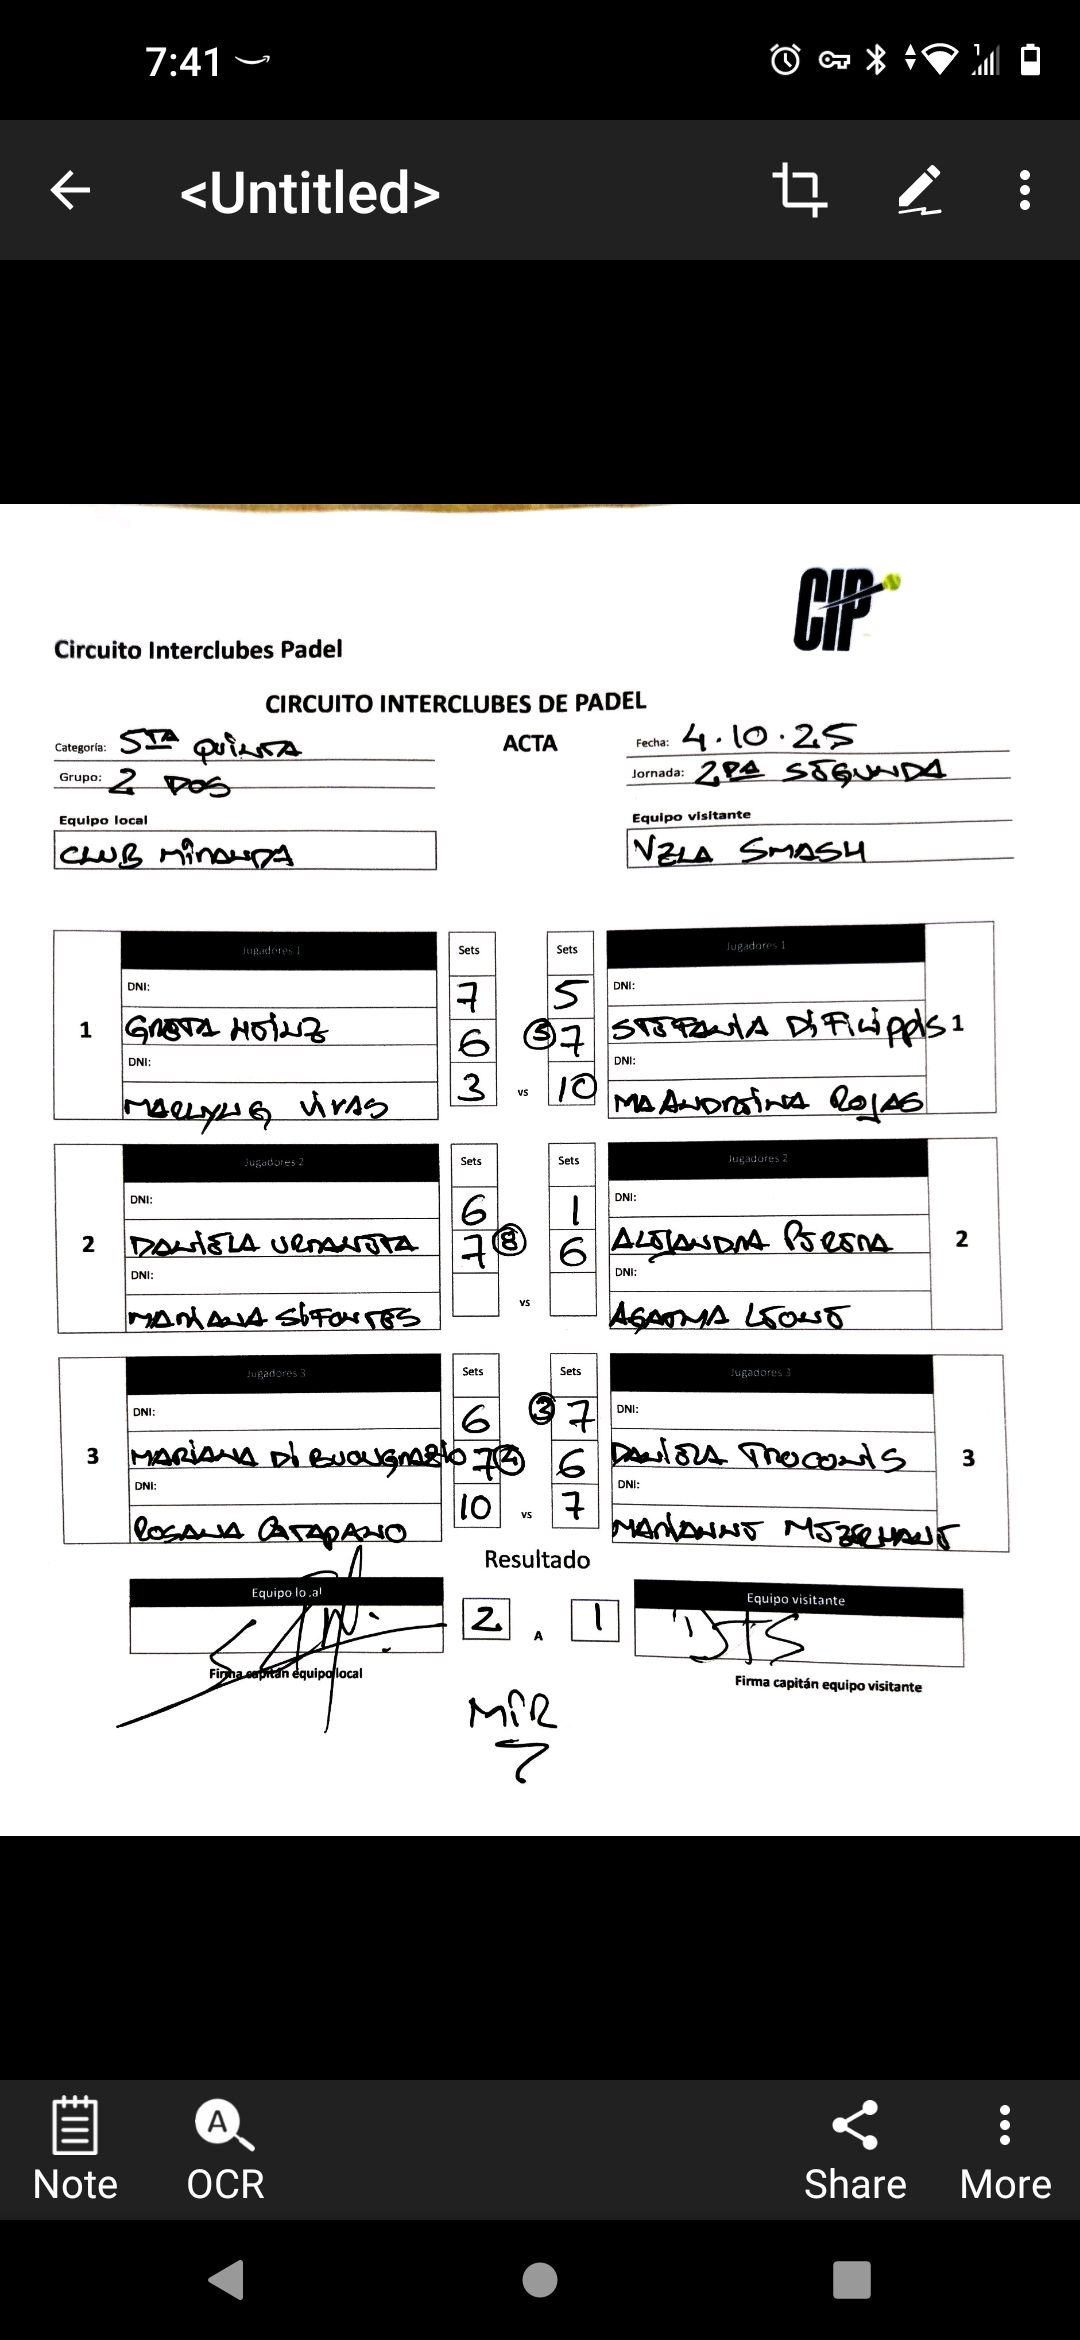 7:41
<Untitled>
CIP
Circuito Interclubes Padel
CIRCUITO INTERCLUBES DE PADEL
Categoría: 5TA QUINTA
ACTA
Fecha: 4.10.25
Grupo: 2 DOS
Jornada: 2DA SEGUNDA
Equipo local
Equipo visitante
CLUB MIRANDA
VZLA SMASH
Jugadores 1 Sets Sets Jugadores 1
DNI: 7 5 DNI:
1 GRETA HEINZ 6 (5) 7 STEFANIA DI FILIPPIS 1
DNI: 3 vs 10 DNI:
VIVAS MA ANDREINA ROJAS
Jugadores 2 Sets Sets Jugadores 2
DNI: 6 1 DNI:
2 DANIELA URDANETA 7 (8) 6 ALEJANDRA PERERA 2
DNI: vs DNI:
MARIANA SIFONTES AGATHA LEONE
Jugadores 3 Sets Sets Jugadores 3
DNI: 6 (3) 7 DNI:
3 MARIANA DI 7 6 DANIELA TROCONIS 3
DNI: 10 vs 7 DNI:
ROSANA CATAPANO MARIANNE
Resultado
Equipo local 2 A 1 Equipo visitante
Firma capitán equipo local
Firma capitán equipo visitante
MIR
Note
OCR
Share
More